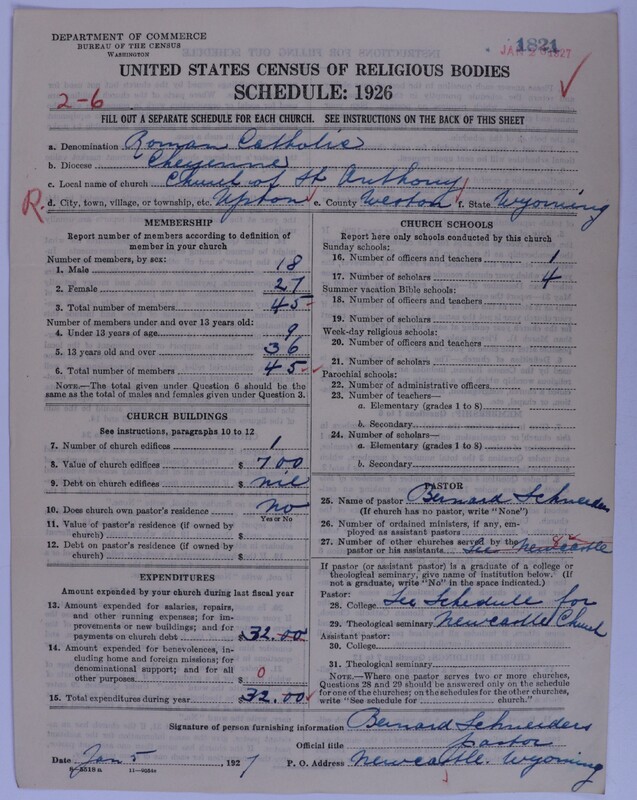 DEPARTMENT OF COMMERCE
BUREAU OF THE CENSUS
WASHINGTON
1821
UNITED STATES CENSUS OF RELIGIOUS BODIES
SCHEDULE: 1926
2-6
FILL OUT A SEPARATE SCHEDULE FOR EACH CHURCH. SEE INSTRUCTIONS ON THE BACK OF THIS SHEET
a. Denomination Roman Catholic
b. Diocese Cheyenne
c. Local name of church Church of St Anthony
R. d. City, town, village, or township, etc. Upton e. County Weston f. State Wyoming
MEMBERSHIP
Report number of members according to definition of member in your church
Number of members, by sex:
1. Male 18
2. Female 27
3. Total number of members 45
Number of members under and over 13 years old:
4. Under 13 years of age 9
5. 13 years old and over 36
6. Total number of members 45
NOTE.—The total given under Question 6 should be the same as the total of males and females given under Question 3.
CHURCH BUILDINGS
See instructions, paragraphs 10 to 12
7. Number of church edifices 1
8. Value of church edifices $700
9. Debt on church edifices $nil
10. Does church own pastor's residence? no
Yes or No
11. Value of pastor's residence (if owned by church) $
12. Debt on pastor's residence (if owned by church) $
EXPENDITURES
Amount expended by your church during last fiscal year
13. Amount expended for salaries, repairs, and other running expenses; for improvements or new buildings; and for payments on church debt $32.00
14. Amount expended for benevolences, including home and foreign missions; for denominational support; and for all other purposes $0
15. Total expenditures during year $32.00
CHURCH SCHOOLS
Report here only schools conducted by this church
Sunday schools:
16. Number of officers and teachers 1
17. Number of scholars 4
Summer vacation Bible schools:
18. Number of officers and teachers
19. Number of scholars
Week-day religious schools:
20. Number of officers and teachers
21. Number of scholars
Parochial schools:
22. Number of administrative officers
23. Number of teachers—
a. Elementary (grades 1 to 8)
b. Secondary
24. Number of scholars—
a. Elementary (grades 1 to 8)
b. Secondary
PASTOR
25. Name of pastor Bernard Schneiders
(If church has no pastor, write "None")
26. Number of ordained ministers, if any, employed as assistant pastors
27. Number of other churches served by the pastor or his assistants See Newcastle
If pastor (or assistant pastor) is a graduate of a college or theological seminary, give name of institution below. (If not a graduate, write "No" in the space indicated.)
Pastor:
28. College See Schedule for
29. Theological seminary Newcastle Church
Assistant pastor:
30. College
31. Theological seminary
NOTE.—Where one pastor serves two or more churches, Questions 28 and 29 should be answered only on the schedule for one of the churches; on the schedules for the other churches, write "See schedule for church."
Signature of person furnishing information Bernard Schneiders
Official title pastor
Date Jan 5 1927 P. O. Address Newcastle. Wyoming